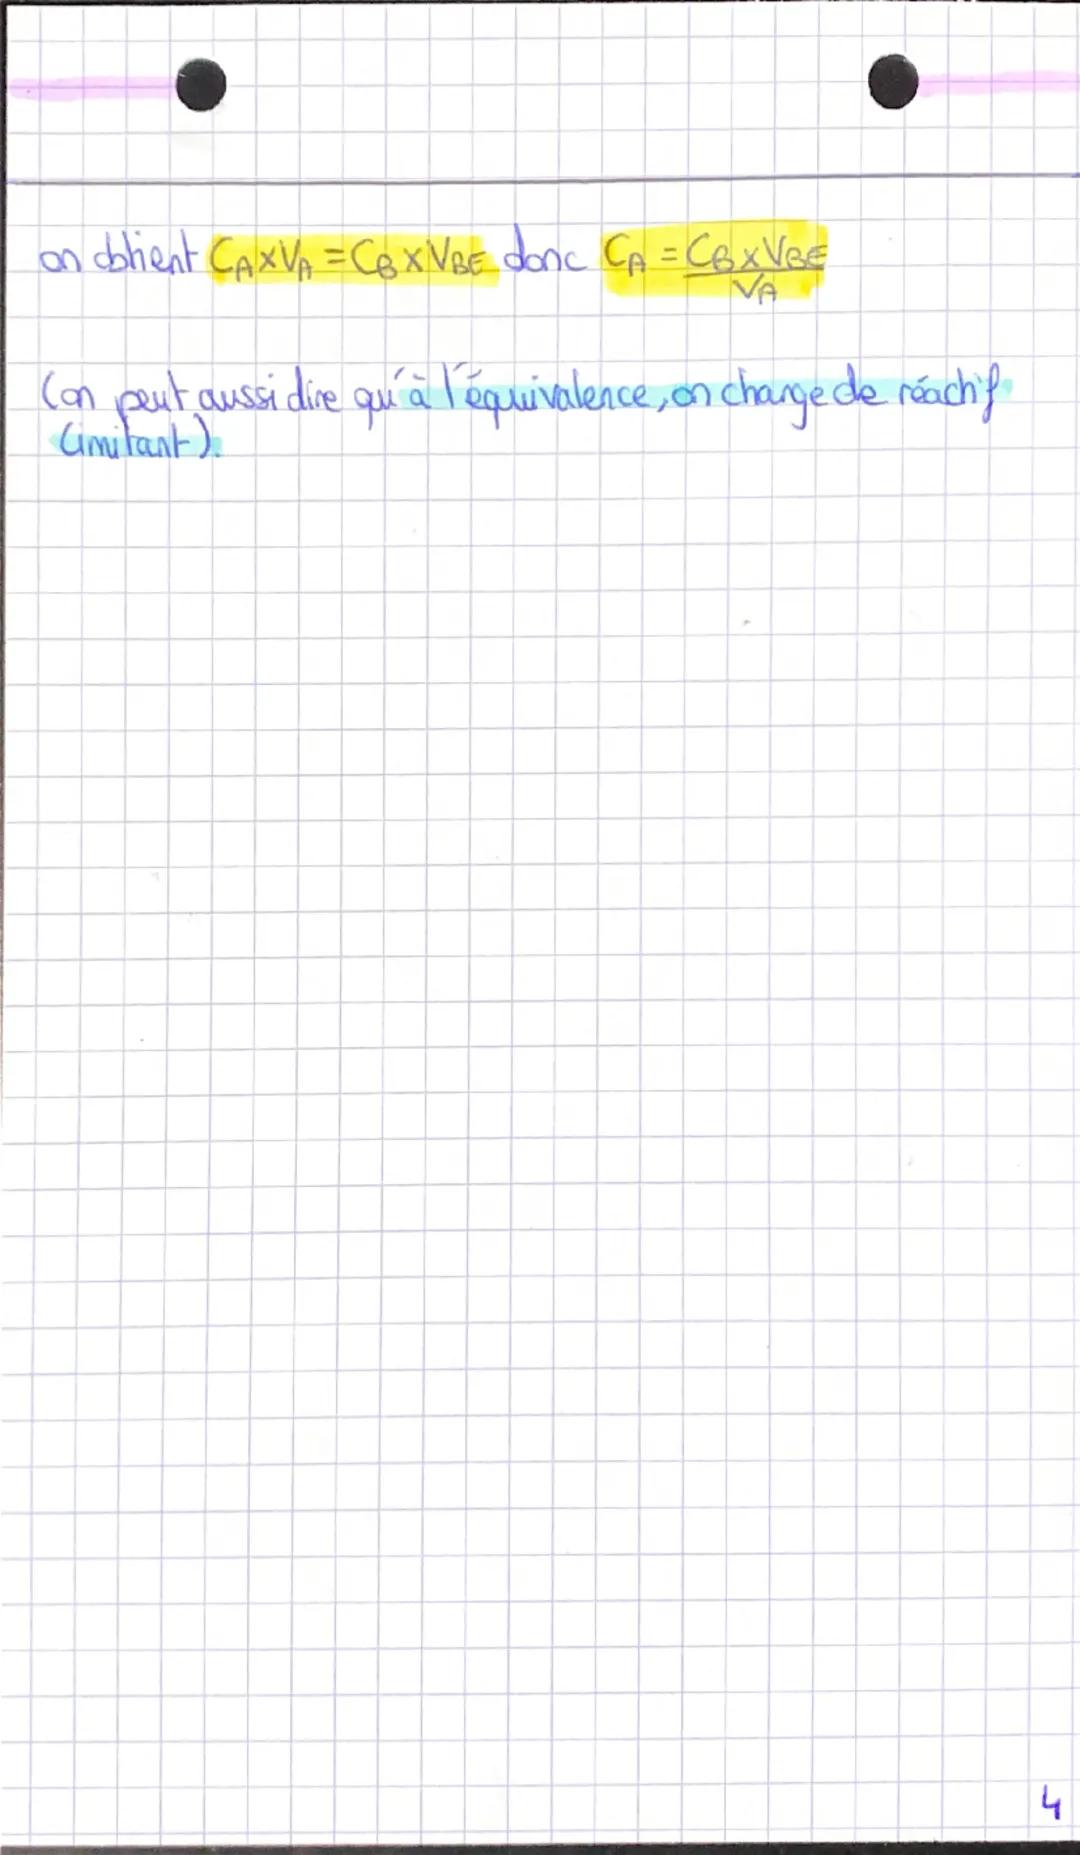 on obtient CA×VA = CB×VBE donc CA = CB×VBE
VA
(on peut aussi dire qu'à l'équivalence, on change de réactif
limitant).
4